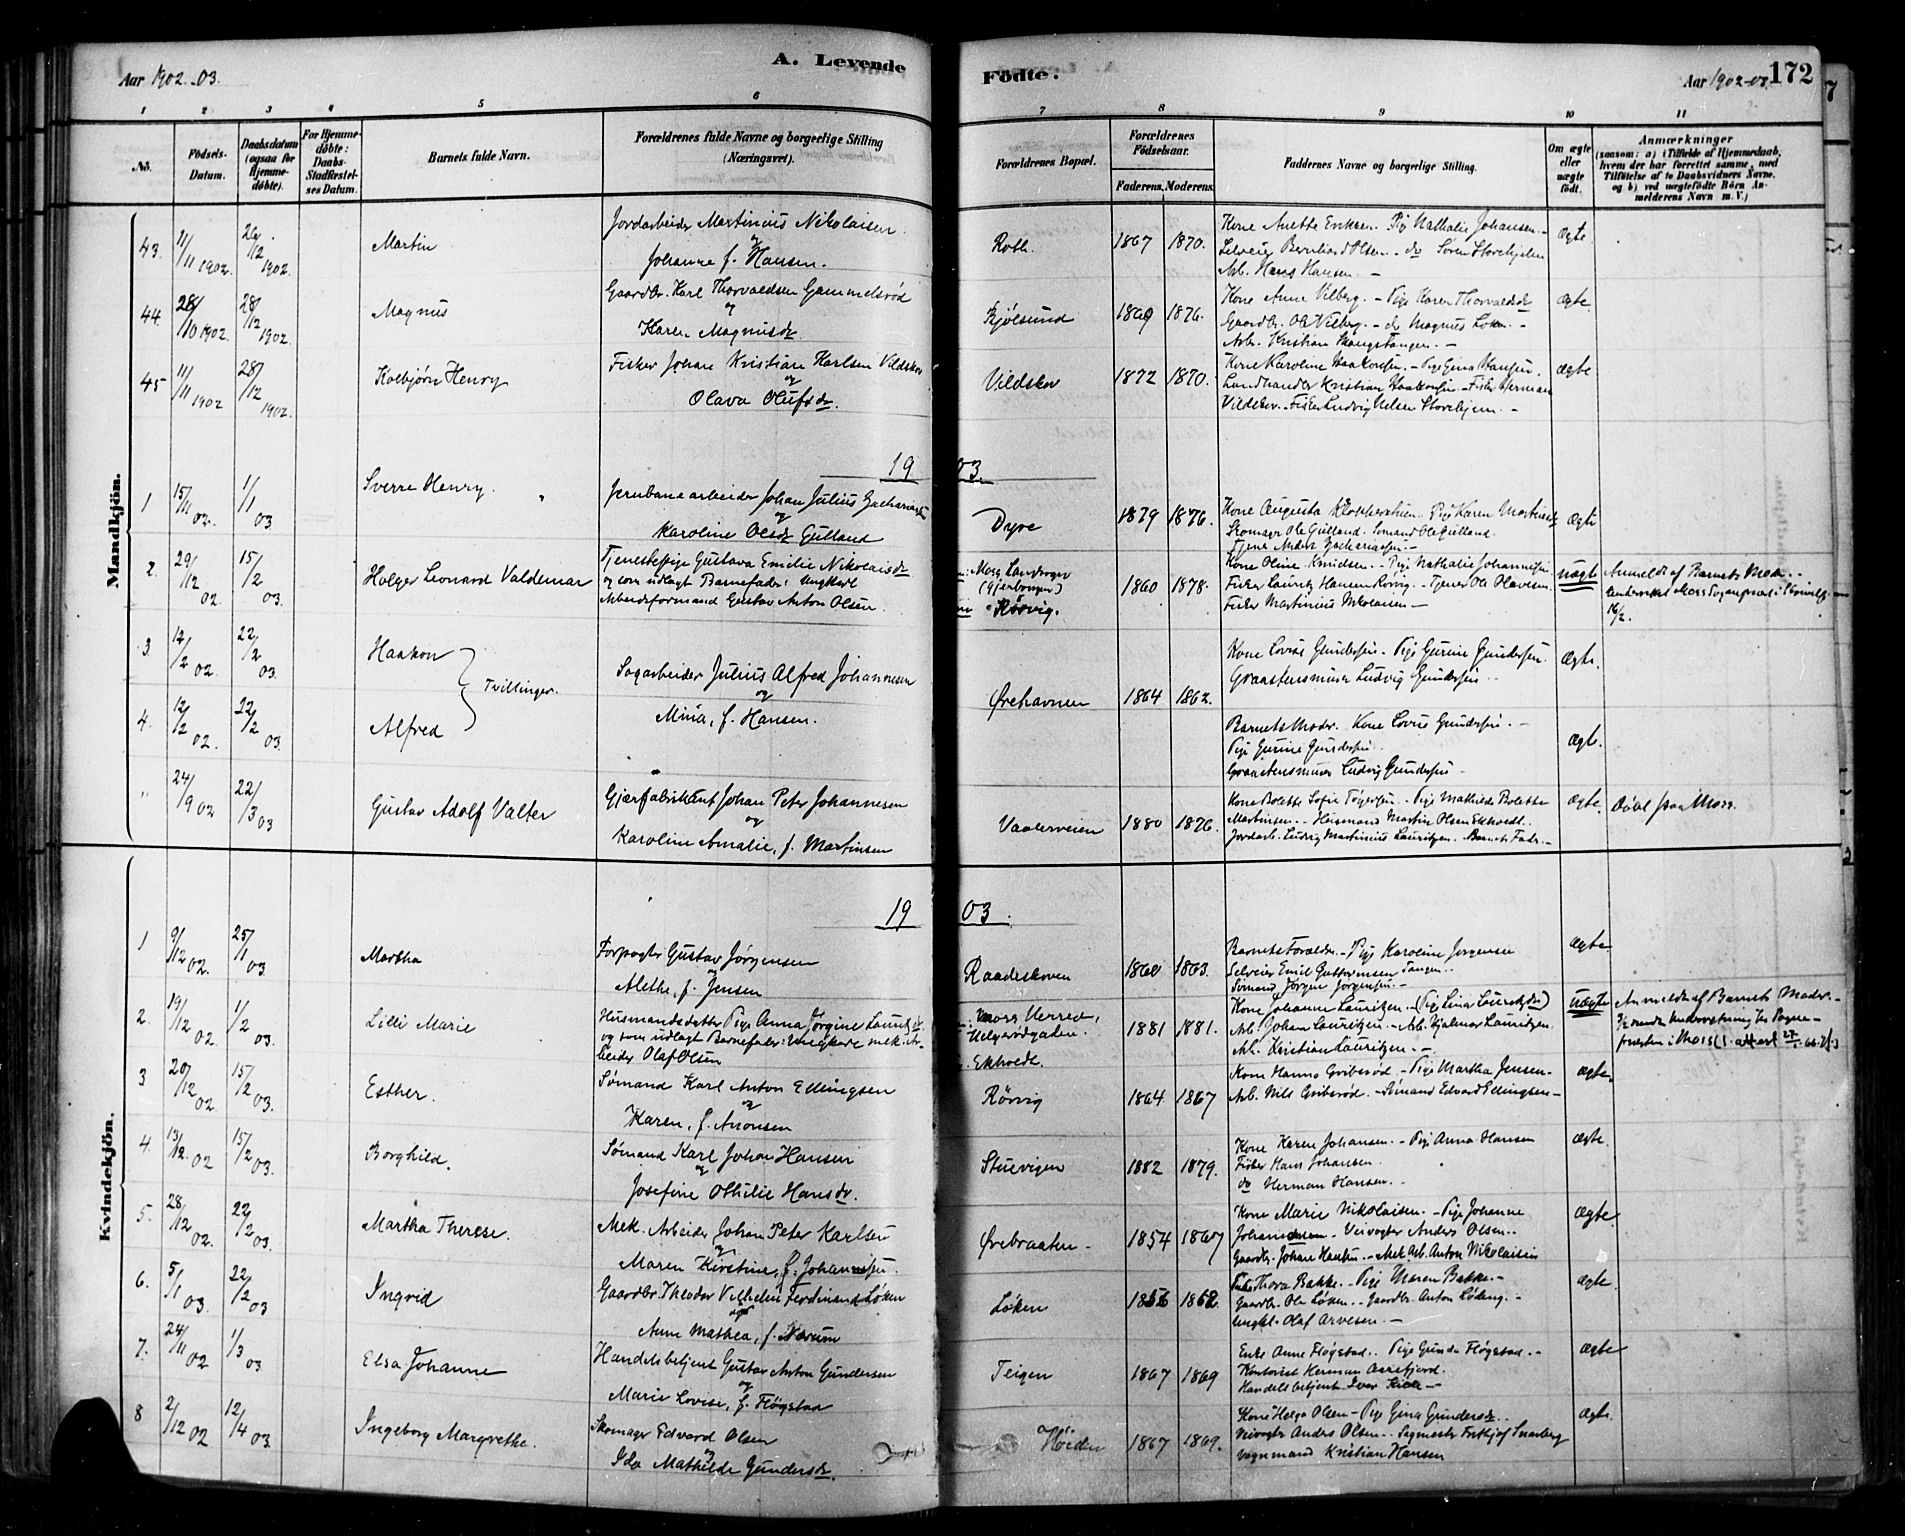 Aar 1902-03.
A. Levende
Födte.
Aar 1902-03.
172
1 2 3 4 5 6 7 8 9 10 11
No.
Födsels-Datum.
Daabsdatum (ogsaa for Hjemme-döbte).
For Hjemme-döbte: Daabs-Stadfæstel-ses Datum.
Barnets fulde Navn.
Forældrenes fulde Navne og borgerlige Stilling (Næringsvei).
Forældrenes Bopæl.
Forældrenes Födselsaar.
Faderens. Moderens.
Faddernes Navne og borgerlige Stilling.
Om ægte eller uægte födt.
Anmærkninger
(saasom: a) i Tilfælde af Hjemmedaab, hvem der har forrettet samme, med Tilföielse af to Daabsvidners Navne, og b) ved uægtefödte Börn An-melderens Navn m. V.)
Mandkjön.
43. 11/11 1902. 26/12 1902. Martin
Jordarbeider Martinius Nikolaisen
og
Johanne f. Hansen.
Roth. 1867 1870.
Kone Anette Eriksen. Pige Nathalie Johansen.
Selveier Bernhard Olsen. do Sören Storehjelen
Arb. Hans Hansen.
Ægte
44. 28/10 1902. 28/12 1902. Magnus
Gaardbr. Karl Thorvaldsen Gammelsrød
og
Karen Magnusdr.
Kjølsund 1869 1876.
Kone Anne Vilberg. Pige Karen Thorvaldsdr
Gaardbr. Ole Vilberg. do Magnus Løken.
Arb. Kristian Skangstangen.
Ægte
45 11/11 1902 28/12 1902. Kolbjørn Henry
Fisker Johan Kristian Karlsen Vildskov
og
Olava Olufsdr.
Vildskov 1872 1870.
Kone Karoline Haakonsen. Pige Gina Hansen.
Landhandler Kristian Haakonsen. Fisker Herman
Vildskov. Fisker Ludvig Nelsen Storehjem.
Ægte
1903.
1 15/11 02. 1/1 03 Sverre Henry.
Jernbanearbeider Johan Julius Zachariassen
og
Karoline Olsdr Gulland
Dyre 1879 1876.
Kone Augusta Klokkerstuen. Pige Karen Martinsdr
Skomager Ole Gulland. Sømand Ole Gulland.
Tjener Anders Zachariassen.
Ægte
2. 29/12 02. 15/2 03. Holger Leonard Valdemar
Tjenestepige Gustava Emilie Nikolaisdr
og som udlagt Barnefader: Ungkarl
Arbeidsformand Gustav Anton Olsen.
Moss Landsogn
Rørvig. 1860 1878.
Kone Oline Knudsen. Pige Nathalie Johannesen
Fisker Lauritz Hansen Rørvig. Tjener Ole Olavesen
Fisker Martinius Nikolaisen
uægte
Anmeldt af Barnets Moder.
16/2.
3. 12/2 02 22/2 03. Haakon
Tvillinger.
Sagarbeider Julius Alfred Johannesen
og
Mina, f. Hansen.
Ørehavnen 1864 1862.
Kone Lovise Gundersen. Pige Gurine Gundersen.
Graastensmurer Ludvig Gundersen.
Ægte.
4. 12/2 02. 22/2 03. Alfred
Barnets Moder. Kone Lovise Gundersen.
Pige Gurine Gundersen.
Graastensmurer Ludvig Gundersen.
Ægte.
" 24/9 02 22/3 03 Gustav Adolf Valter
Gjærfabrikant Johan Peter Johannesen
og
Karoline Amalie, f. Martinsen
Vaalerveien 1880 1876.
Kone Bolette Sofie Tøgersen. Pige Mathilde Bolette
Martinsen. Husmand Martin Olsen Ekholdt.
Jordarb. Ludvig Martinius Lauritzen. Barnets Fader.
Ægte. Døbt paa Moss.
Kvindekjön.
1903.
1 9/12 02. 25/1 03. Martha
Forpagter Gustav Jørgensen
og
Alethe, f. Jensen
Raadeskoven 1860 1863.
Barnets Forældre. Pige Karoline Jørgensen
Selveier Emil Guttormsen Tangen.
Sømand Jørgen Jørgensen.
Ægte
2. 19/12 02 1/2 03. Lilli Marie
Husmandsdatter Pige Anna Jørgine Lauritzdr.
og som udlagt Barnefader: Ungkarl mek. Ar-
beider Olaf Olsen
Moss Herred,
Helgerødgaden
Ekholdt. 1881 1881.
Kone Johanne Lauritzen. (Pige Lina Lauritzdr.)
Arb. Johan Lauritzen. Arb. Hjalmar Lauritzen.
Arb. Kristian Lauritzen.
uægte
Anmeldt af Barnets Moder.
3/2 sendt Underretning til Sogne-
presten i Moss
3 20/12 02 15/2 03. Esther.
Sømand Karl Anton Ellingsen
og
Karen, f. Aronsen
Rørvig 1864 1867
Kone Hanna Gribsrød. Pige Martha Jensen.
Arb. Nils Gribsrød. Sømand Edvard Ellingsen
Ægte
4 13/12. 02 15/2 03. Borghild.
Sømand Karl Johan Hansen
og
Josefine Othilie Hansdr.
Stuevigen 1882 1879.
Kone Karen Johansen. Pige Anna Hansen
Fisker Hans Johansen.
do Herman Hansen.
Ægte.
5. 28/12 02. 22/2 03. Martha Therese.
Mek. Arbeider Johan Peter Karlsen
og
Maren Kirstine, f. Johannesen.
Ørebraaten 1854 1867
Kone Marie Nikolaisen. Pige Johanne
Johansen. Veivogter Anders Olsen.
Gaardbr. Johan Hansen. Mek Arb. Anton Nikolaisen
Ægte
6. 5/1 03. 22/2 03 Ingrid
Gaardbr. Theodor Vilhelm Ferdinand Løken
og
Anne Mathea, f. Nærum
Løken 1856 1862.
Thora Bakke. Pige Maren Bakke.
Gaardbr. Ole Løken. Gaardbr. Anton Løking.
Ungk. Olaf Arvesen.
Ægte
7. 24/11 02 1/3 03 Elsa Johanne
Handelsbetjent Gustav Anton Gundersen
og
Marie Lovise, f. Fløgstad
Teigen 1867 1869
Enke Anne Fløgstad. Pige Gunda Fløgstad.
Kontorist Herman Aarefjord.
Handelsbetjent Iver Kicle
Ægte
8 2/12 02 12/4 03. Ingeborg Margrethe.
Skomager Edvard Olsen
og
Ida Mathilde Gundersdr.
Høiden 1867 1869.
Kone Helga Olsen. Pige Gina Gundersdr.
Veivogter Anders Olsen. Sagmester Fritjof Snarberg
Vognmand Kristian Hansen
Ægte